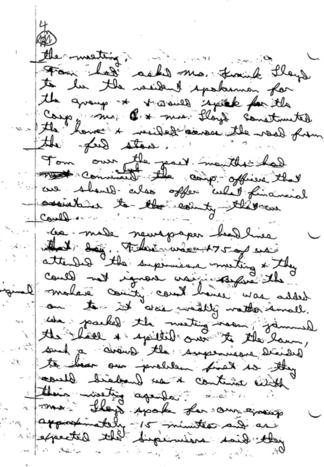 4
the meeting.
Tom had asked Mr. Frank Lloyd
to be the resident spokesman for
the group & I would speak for the
Corp. Mr. & Mrs. Lloyd constructed
the home & resided across the road from
the feed store.
Tom over the past months had
convinced the corp. officers that
we should also offer what financial
assistance to the county that we
could.
We made newspaper headlines
that day. There was 75 of us
attended the supervisors meeting & they
could not ignore us. Before the
original Mohave County court house was added
on to it was really small.
We packed the meeting room, jammed
the hall & spilled over to the lawn,
such a crowd the supervisors decided
to hear our problem first so they
could disband us & continue with
their meeting agenda.
Mr. Lloyd spoke for our group
approximately 15 minutes and as
expected the supervisors said they